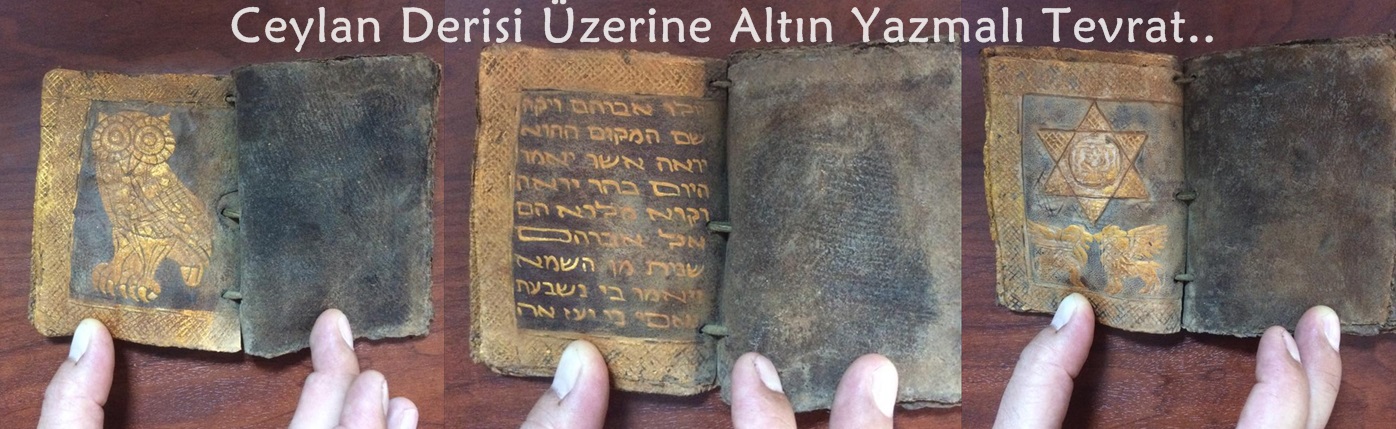 Ceylan Derisi Üzerine Altın Yazmalı Tevrat..
אברהם ויקרא
שם המקום ההוא
יראה אשר יאמר
היום בהר יראה
אל אברהם
שנית מן השמא
ויאמר בי נשבעת
כי יען אה